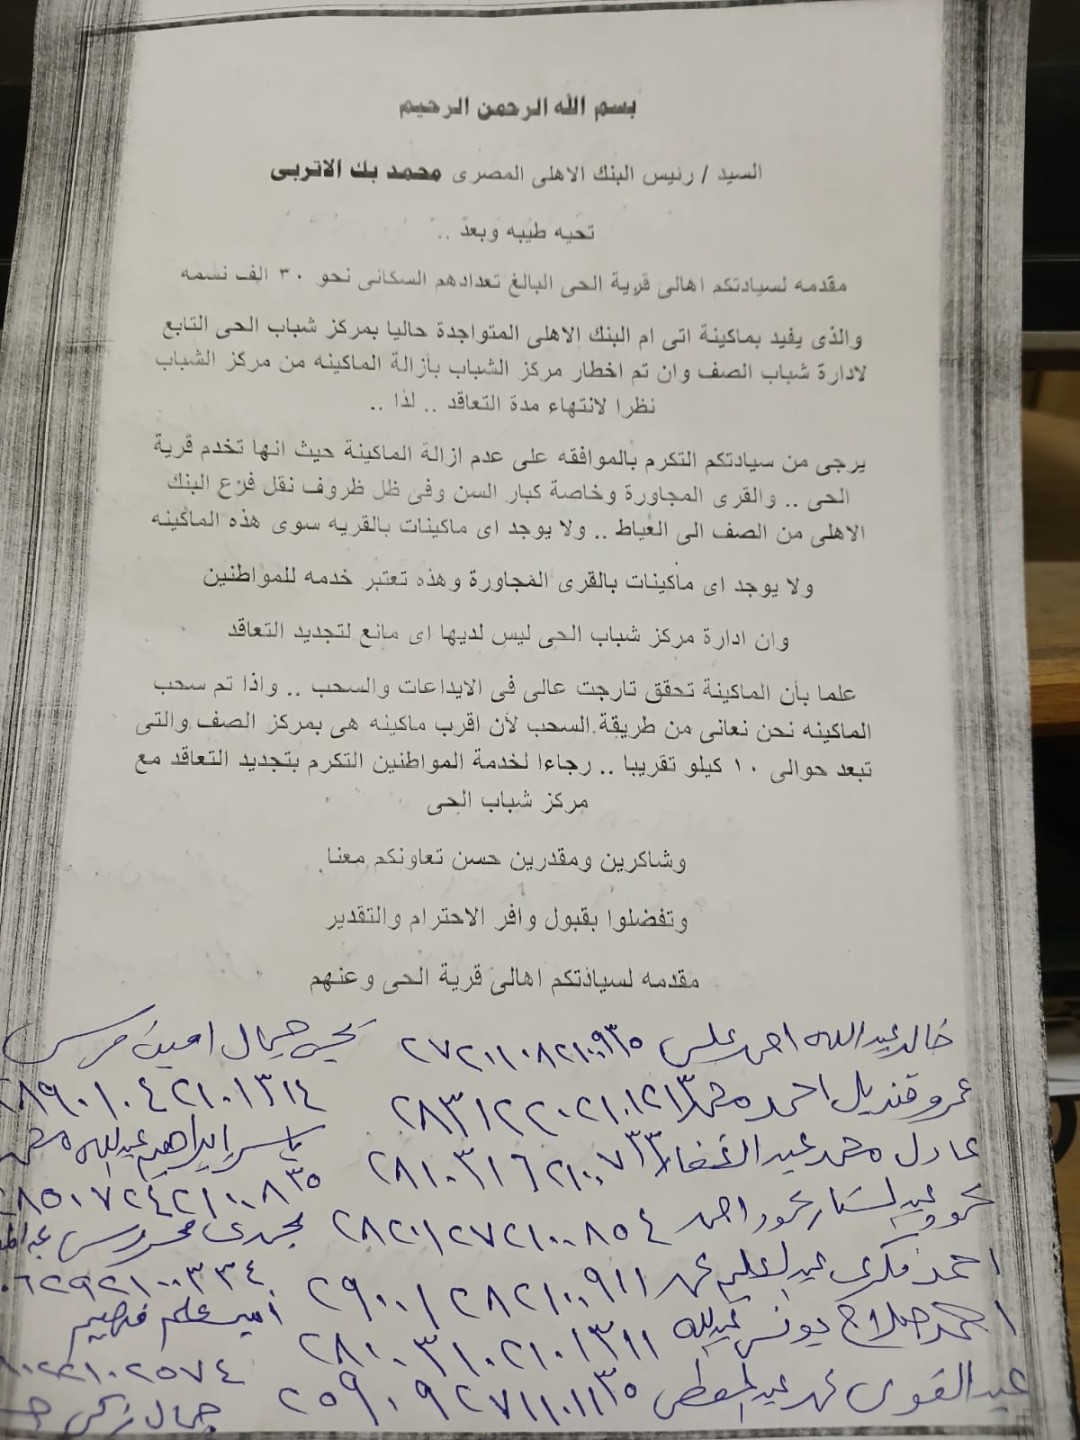 بسم الله الرحمن الرحيم
السيد / رئيس البنك الاهلى المصرى محمد بك الاتربى
تحيه طيبه وبعد ..
مقدمه لسيادتكم اهالى قرية الحى البالغ تعدادهم السكانى نحو ٣٠ الف نسمه
والذى يفيد بماكينة اتى ام البنك الاهلى المتواجدة حاليا بمركز شباب الحى التابع
لادارة شباب الصف وان تم اخطار مركز الشباب بأزالة الماكينه من مركز الشباب
نظرا لانتهاء مدة التعاقد .. لذا ..
يرجى من سيادتكم التكرم بالموافقه على عدم ازالة الماكينة حيث انها تخدم قرية
الحى .. والقرى المجاورة وخاصة كبار السن وفى ظل ظروف نقل فرع البنك
الاهلى من الصف الى العياط .. ولا يوجد اى ماكينات بالقريه سوى هذه الماكينه
ولا يوجد اى ماكينات بالقرى المجاورة وهذه تعتبر خدمه للمواطنين
وان ادارة مركز شباب الحى ليس لديها اى مانع لتجديد التعاقد
علما بأن الماكينة تحقق تارجت عالى فى الايداعات والسحب .. واذا تم سحب
الماكينه نحن نعانى من طريقة السحب لأن اقرب ماكينه هى بمركز الصف والتى
تبعد حوالى ١٠ كيلو تقريبا .. رجاءا لخدمة المواطنين التكرم بتجديد التعاقد مع
مركز شباب الحى
وشاكرين ومقدرين حسن تعاونكم معنا
وتفضلوا بقبول وافر الاحترام والتقدير
مقدمه لسيادتكم اهالى قرية الحى وعنهم
خالد عبدالله احمد على
جمال امين مرسى
عمرو قنديل احمد محمد
عادل محمد عبد الغفار
ياسر ابراهيم عبدالله محمد
محمود عبدالستار محمود احمد ٢٨٢٠١٢٧٢١٠٠٨٥٤
مجدى محروس
احمد فكرى عبدالعليم محمد ٢٩٠٠١٢٨٢١٠٠٩١١
احمد صلاح يونس عبدالله ٢٨٠٠٣١٠٢١٠١٣١١
عبد القوى محمد عبدالمعطى
جمال زكى